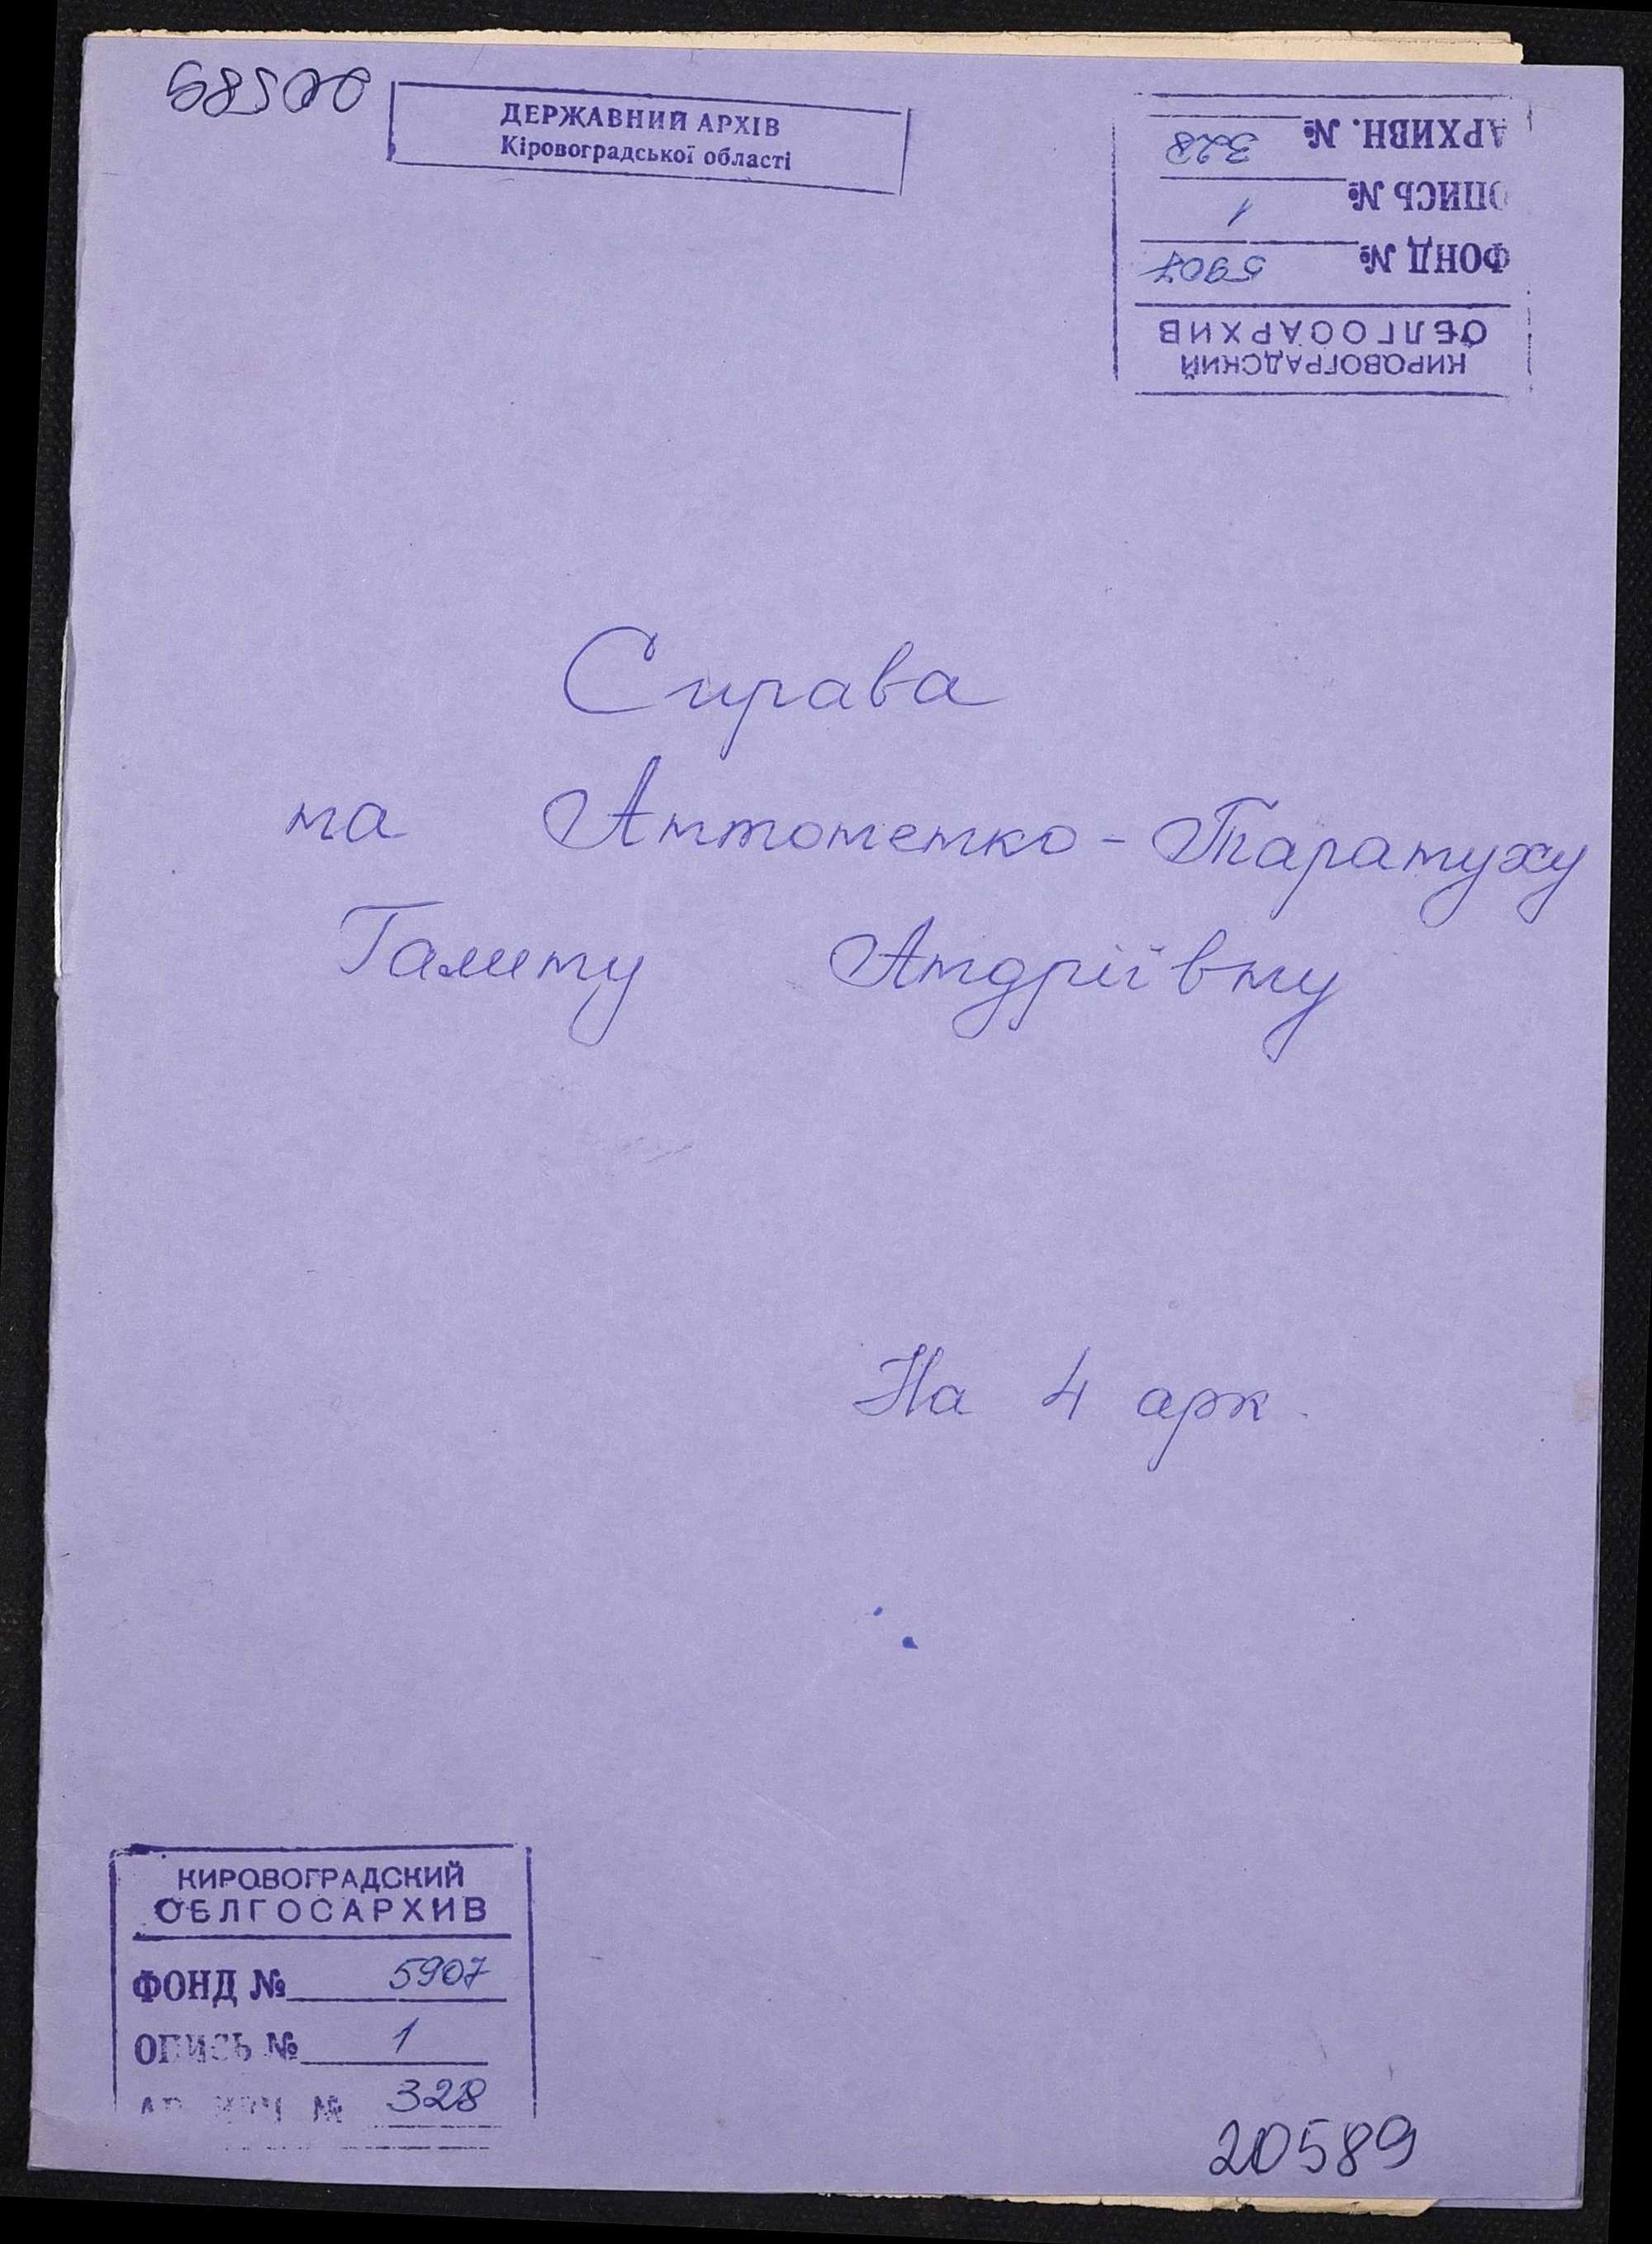 20589
ДЕРЖАВНИЙ АРХІВ
Кіровоградської області
АРХИВН. № 328
ОПИСЬ № 1
ФОНД № 5907
ОБЛГОСАРХИВ
КИРОВОГРАДСКИЙ
Справа
на Антоненко-Таратуху
Галину Андріївну
На 4 арк.
КИРОВОГРАДСКИЙ
ОБЛГОСАРХИВ
ФОНД № 5907
ОПИСЬ № 1
АРХИВН № 328
20589